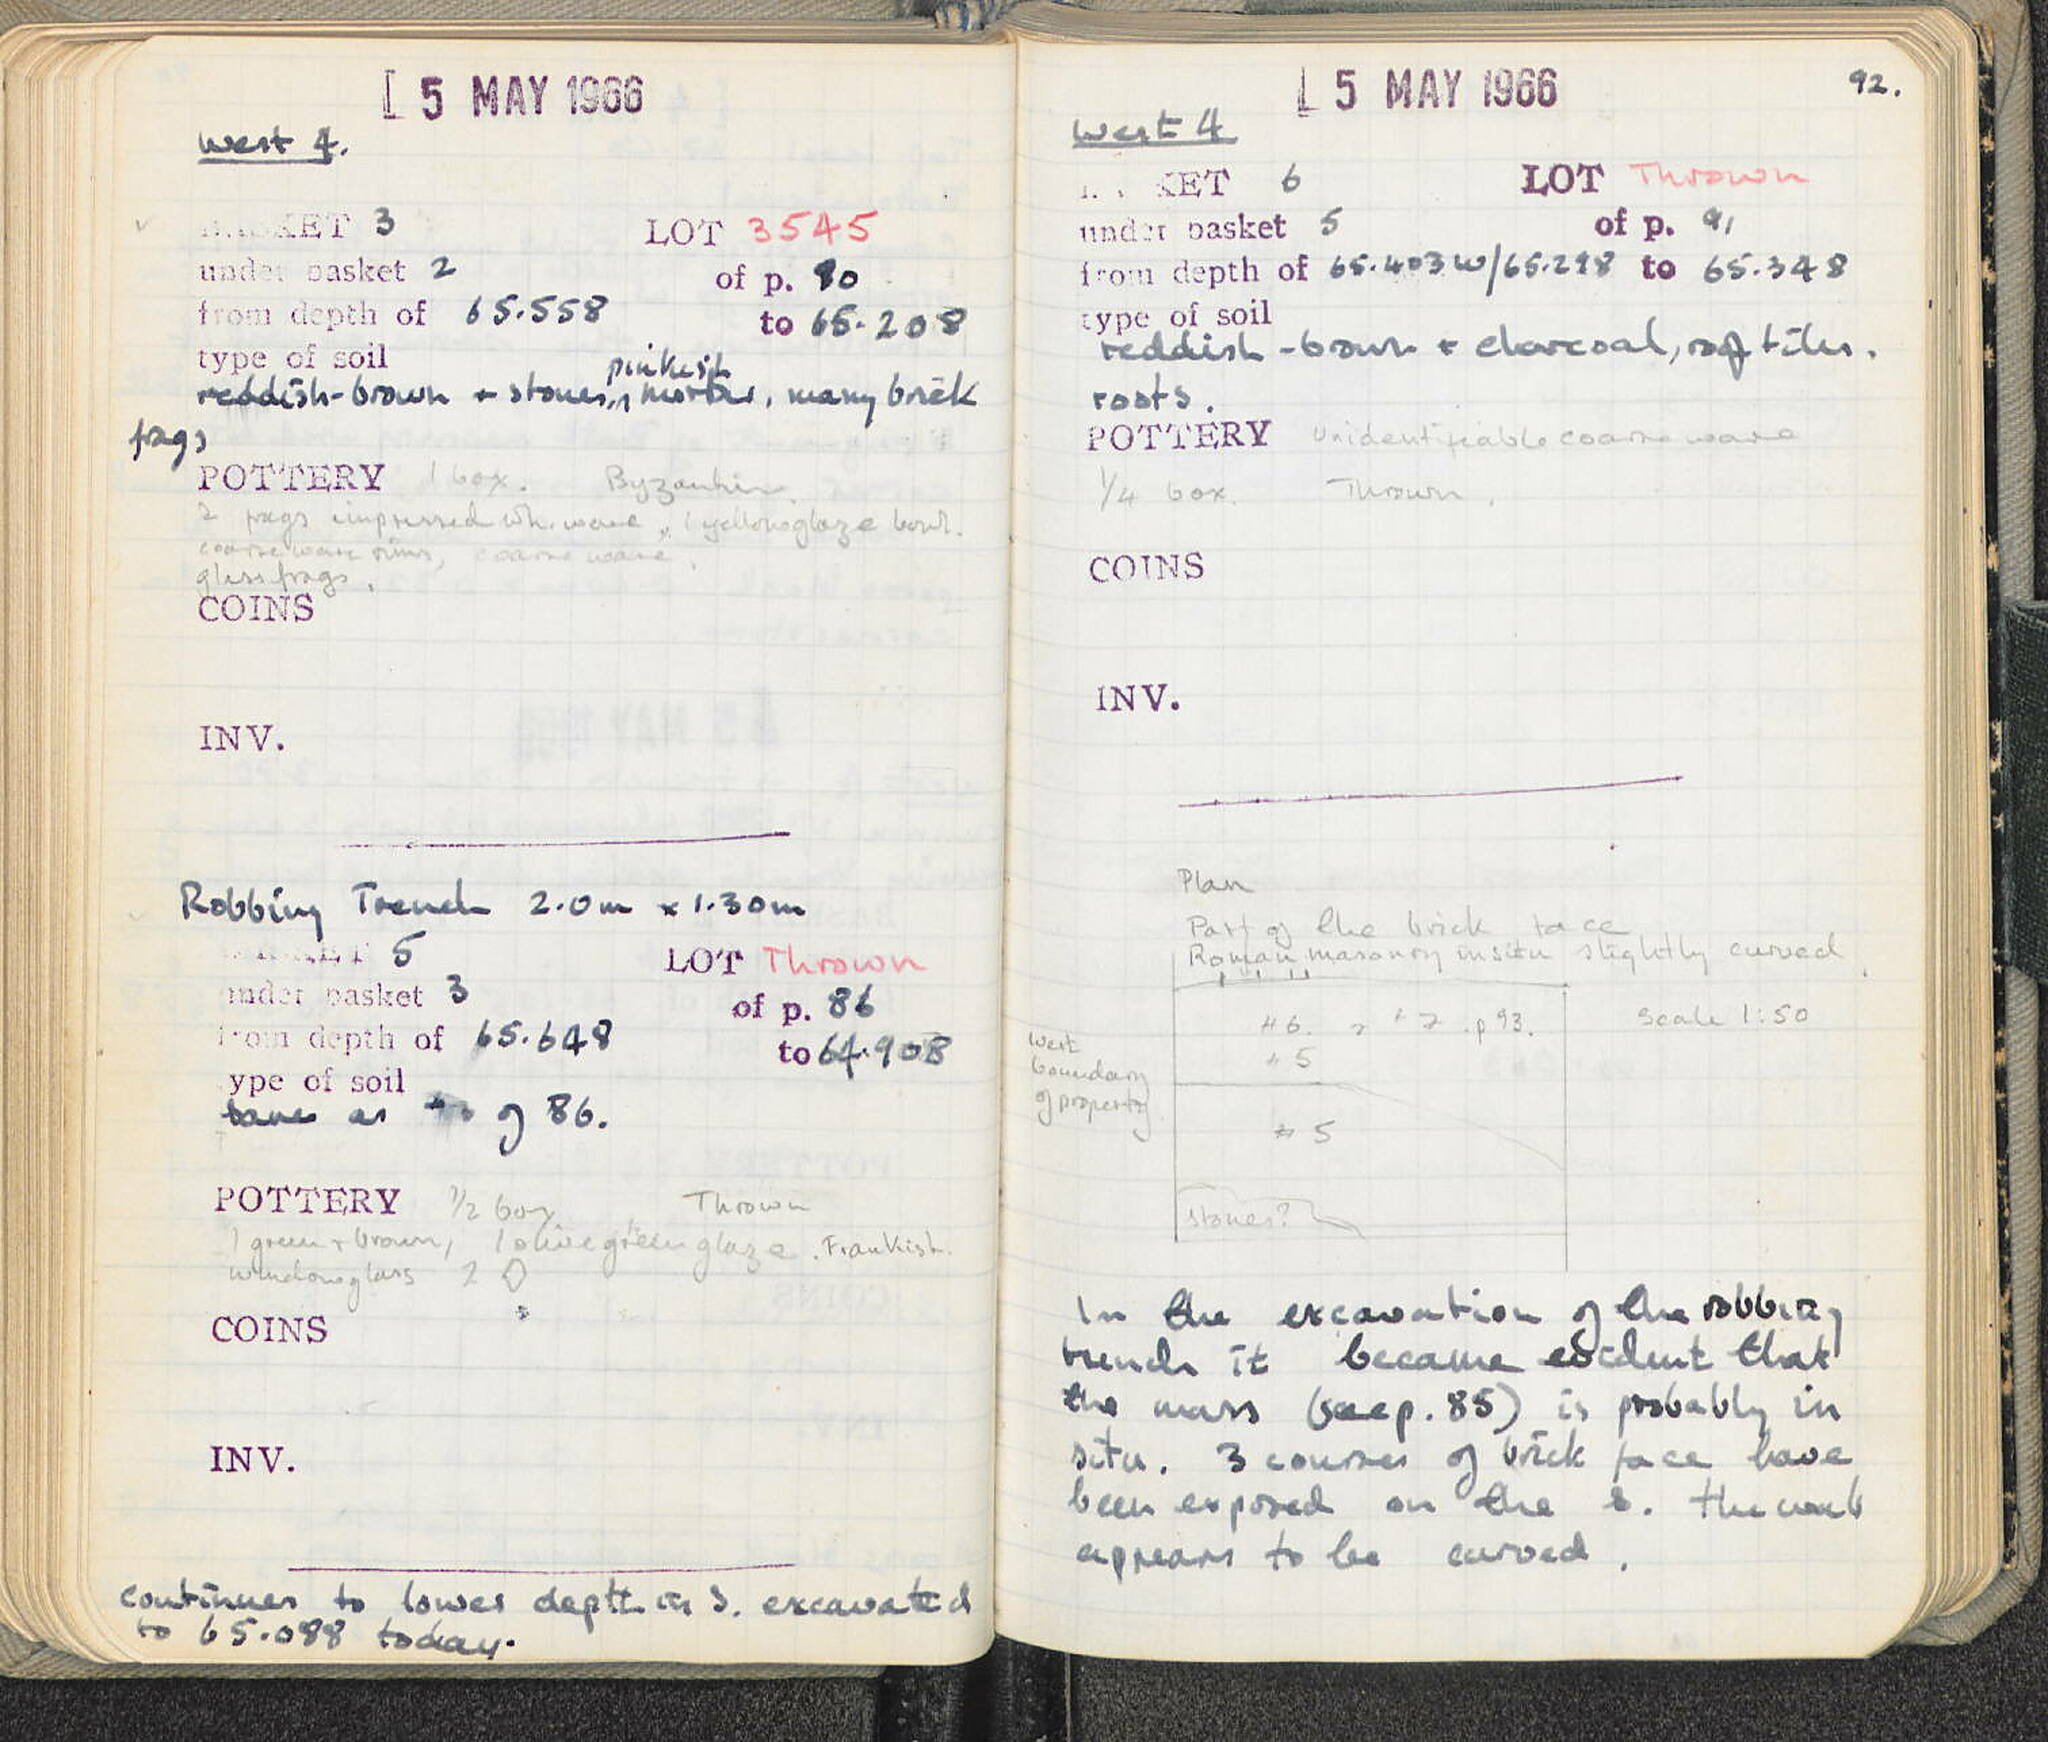 5 MAY 1966
West 4.
BASKET 3 LOT 3545
under basket 2 of p. 90
from depth of 65.558 to 65.208
type of soil
reddish-brown + stones, pinkish mortar, many brick
frags
POTTERY 1 box. Byzantine.
2 frags impressed wh. ware, 1 yellow glaze bowl.
coarse ware rims, coarse ware,
glass frags.
COINS
INV.
Robbing Trench 2.0m x 1.30m
BASKET 5 LOT Thrown
under basket 3 of p. 86
from depth of 65.648 to 64.908
type of soil
same as of 86.
POTTERY 1/2 box Thrown
1 green + brown, 1 olive green glaze. Frankish.
window glass 2
COINS
INV.
continues to lower depth in S. excavated
to 65.088 today.
5 MAY 1966
92.
West 4
BASKET 6 LOT Thrown
under basket 5 of p. 91
from depth of 65.403 W/65.298 to 65.348
type of soil
reddish-brown + charcoal, roof tiles.
roots.
POTTERY Unidentifiable coarse ware
1/4 box. Thrown.
COINS
INV.
Plan
Part of the brick face
Roman masonry in situ slightly curved
#6. p 93.
Scale 1:50
# 5
West
boundary
of property
# 5
stones?
In the excavation of the robbing
trench it became evident that
the mass (see p. 85) is probably in
situ. 3 courses of brick face have
been exposed on the S. The wall
appears to be curved.